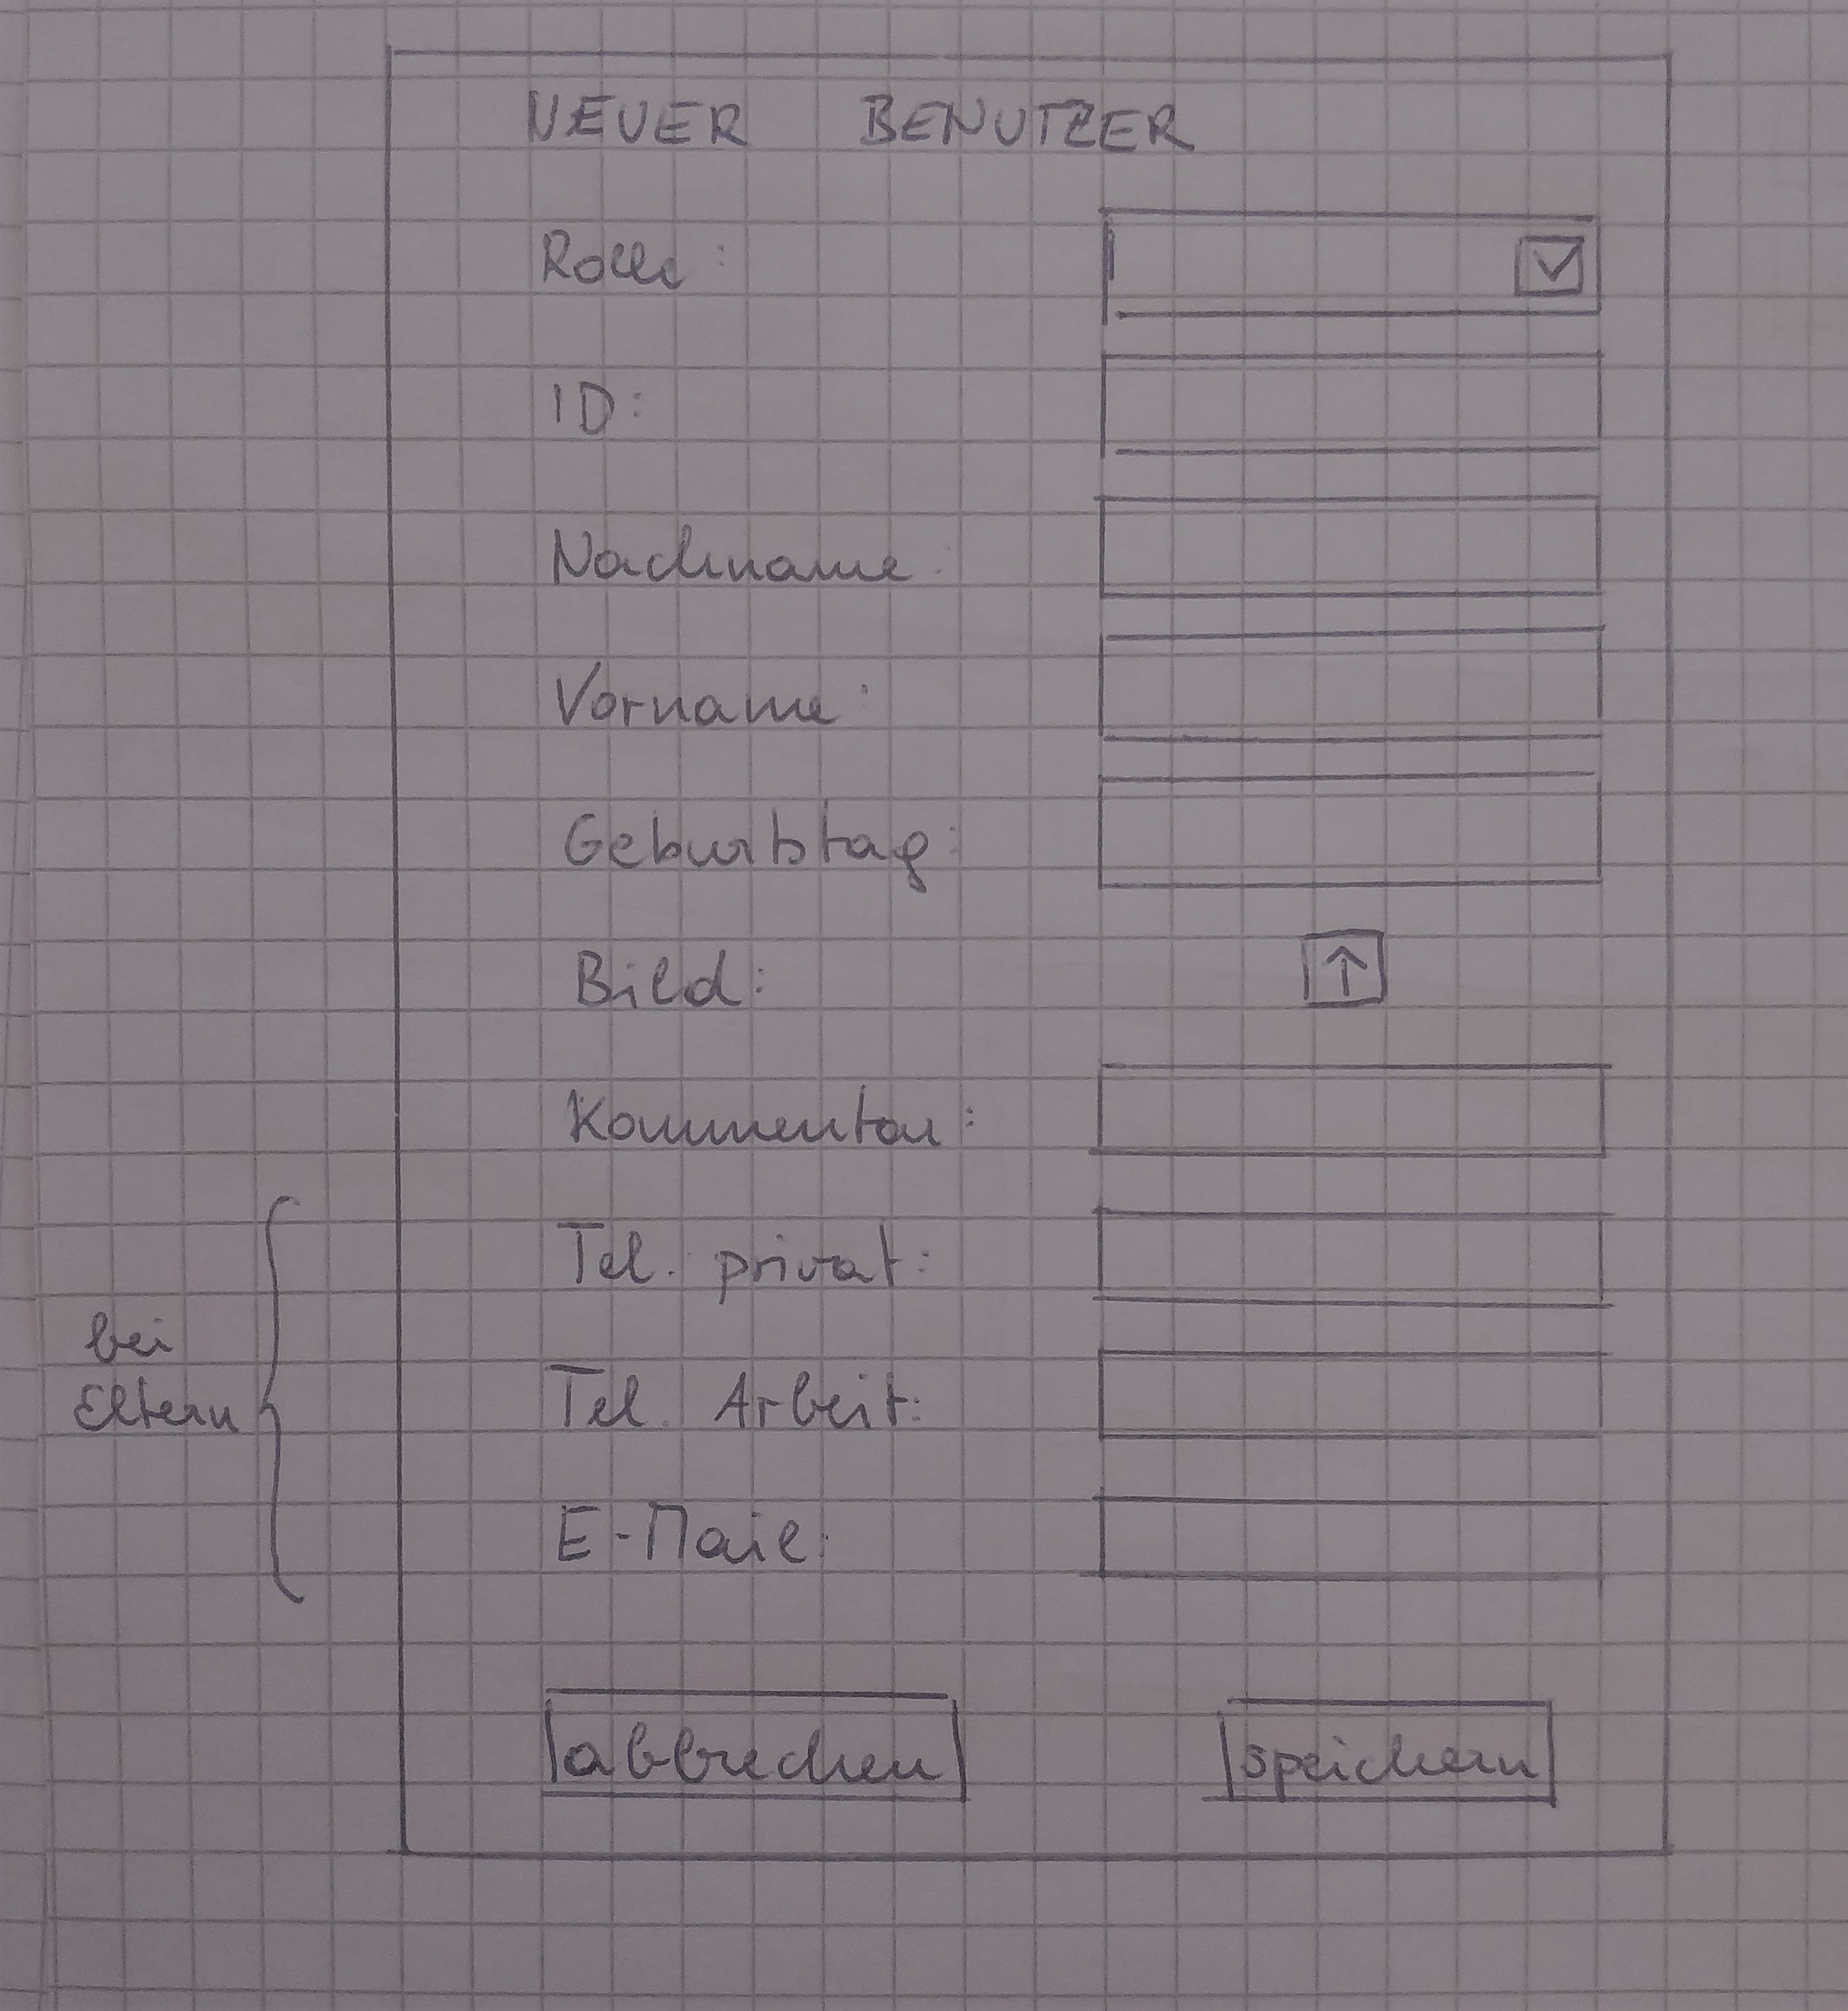 NEUER BENUTZER
Rolle:
ID:
Nachname:
Vorname:
Geburtstag:
Bild:
Kommentar:
Tel. privat:
bei
Eltern
Tel. Arbeit:
E-Mail:
abbrechen
speichern